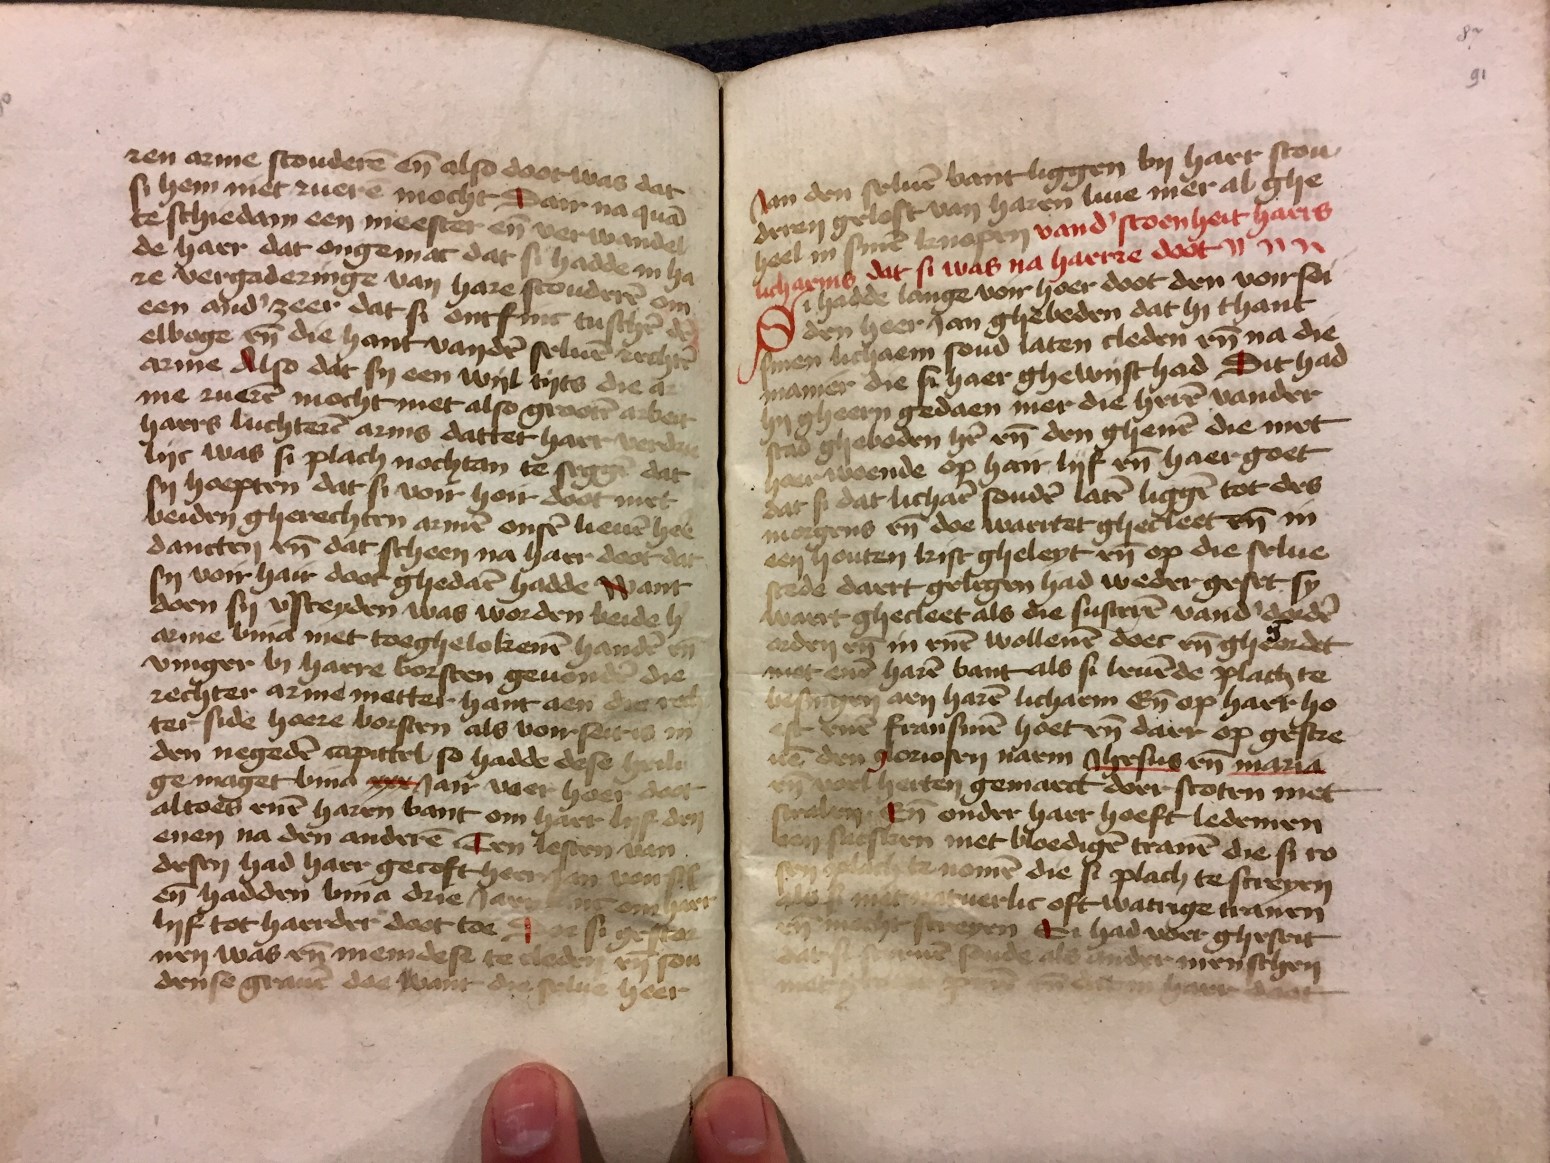 ren arme scouderē en̄ also doot was dat
si hem niet ruerē mocht Dair na quā
te schiedam een meester en̄ verwandel
de haer dat ongemac dat si hadde in ha
re vergaderinge van hare scouderē om
een and' zeer dat si ontfinc tuschē dē
elboge en̄ die hant vandē seluē rechtē
arme Also dat sij een wijl tijts die ar
me ruerē mocht met also grootē arbeit
haers luchterē arms dattet haer verdrie
lijc was si plach nochtan te seggē dat
sij hoepten dat si voir hoir doot met
beiden gherechten armē onsē lieuē hee
dancten en̄ dat scheen na haer doot dat
sij voir hair doot ghedaē hadde Want
doen sij v'steyden was worden beide h
arme bina met toeghelokenē handē en̄
vinger bi harre borsten geuondē die
rechter arme metter hant aen die rech
ter side hoere borsten als voir seit is in
den negedē capittel so hadde dese heili
ge maget bina xxx Jair voer hoer doot
altoes enē haren bant om haer lijf den
enen na den anderē Den lesten van
desen had haer gecoft heer Jan von
en̄ hadden bina drie Jaer om haer
lijf tot haerder doot toe Doe si gestor
uen was en̄ mendese te cleden en̄ sou
dense grauē doe want die selue heer
87
91
Jan den seluē bant liggen bij haer scou
deren gelost van haren liue mer al ghe
heel in sinē knopen vand' scoenheit haers
lichaems dat si was na haerre doot
Si hadde lange voir hoer doot den voirsei
den heer Jan ghebeden dat hi thant
sinen lichaem soud laten cleden en̄ na die
manier die si haer ghewijst had Dit had
hij gheern gedaen mer die herē vander
stad gheboden hē en̄ den ghenē die met
haer woende op hair lijf en̄ haer goet
dat si dat lichaē soudē latē liggē tot des
morgens en̄ doe waertet ghecleet en̄ in
een houten kist gheleyt en̄ op die selue
stede daert gelegen had weder geset sy
waert ghecleet als die susterē vand' derdē
orden en̄ in enē wollenē doec en̄ ghegordet
met enē harē bant als si leuēde plach te
besingen aen harē lichaem En̄ op haer ho
eft enē fransinē hoet en̄ daer op gescre
uē den gloriosen naem Jhesus en̄ maria
en̄ veel herten gemaect doer scoten met
stralen En̄ onder haer hoeft ledemen
met bloedigē tranē die si ro
sen plach te nomē die si plach te screyen
als si niet natuerlic oft watrige tranen
en̄ mocht screyen Si had voer gheseit
dat si steruē soude als ander menschen
haer doot